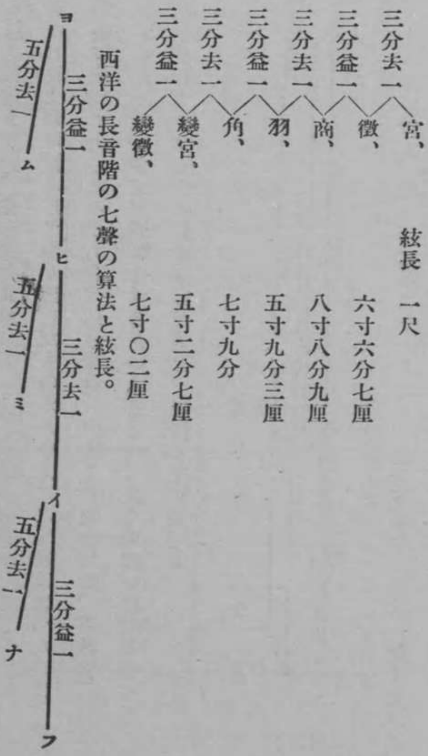 宮、 絃長 一尺
三分去一
徵、 六寸六分七厘
三分益一
商、 八寸八分九厘
三分去一
羽、 五寸九分三厘
三分益一
角、 七寸九分
三分去一
變宮、 五寸二分七厘
三分益一
變徵、 七寸〇二厘
西洋の長音階の七聲の算法と絃長。
ヨ 三分益一 ヒ 三分去一 イ 三分益一 フ
五分去一 ム 五分去一 ミ 五分去一 ナ